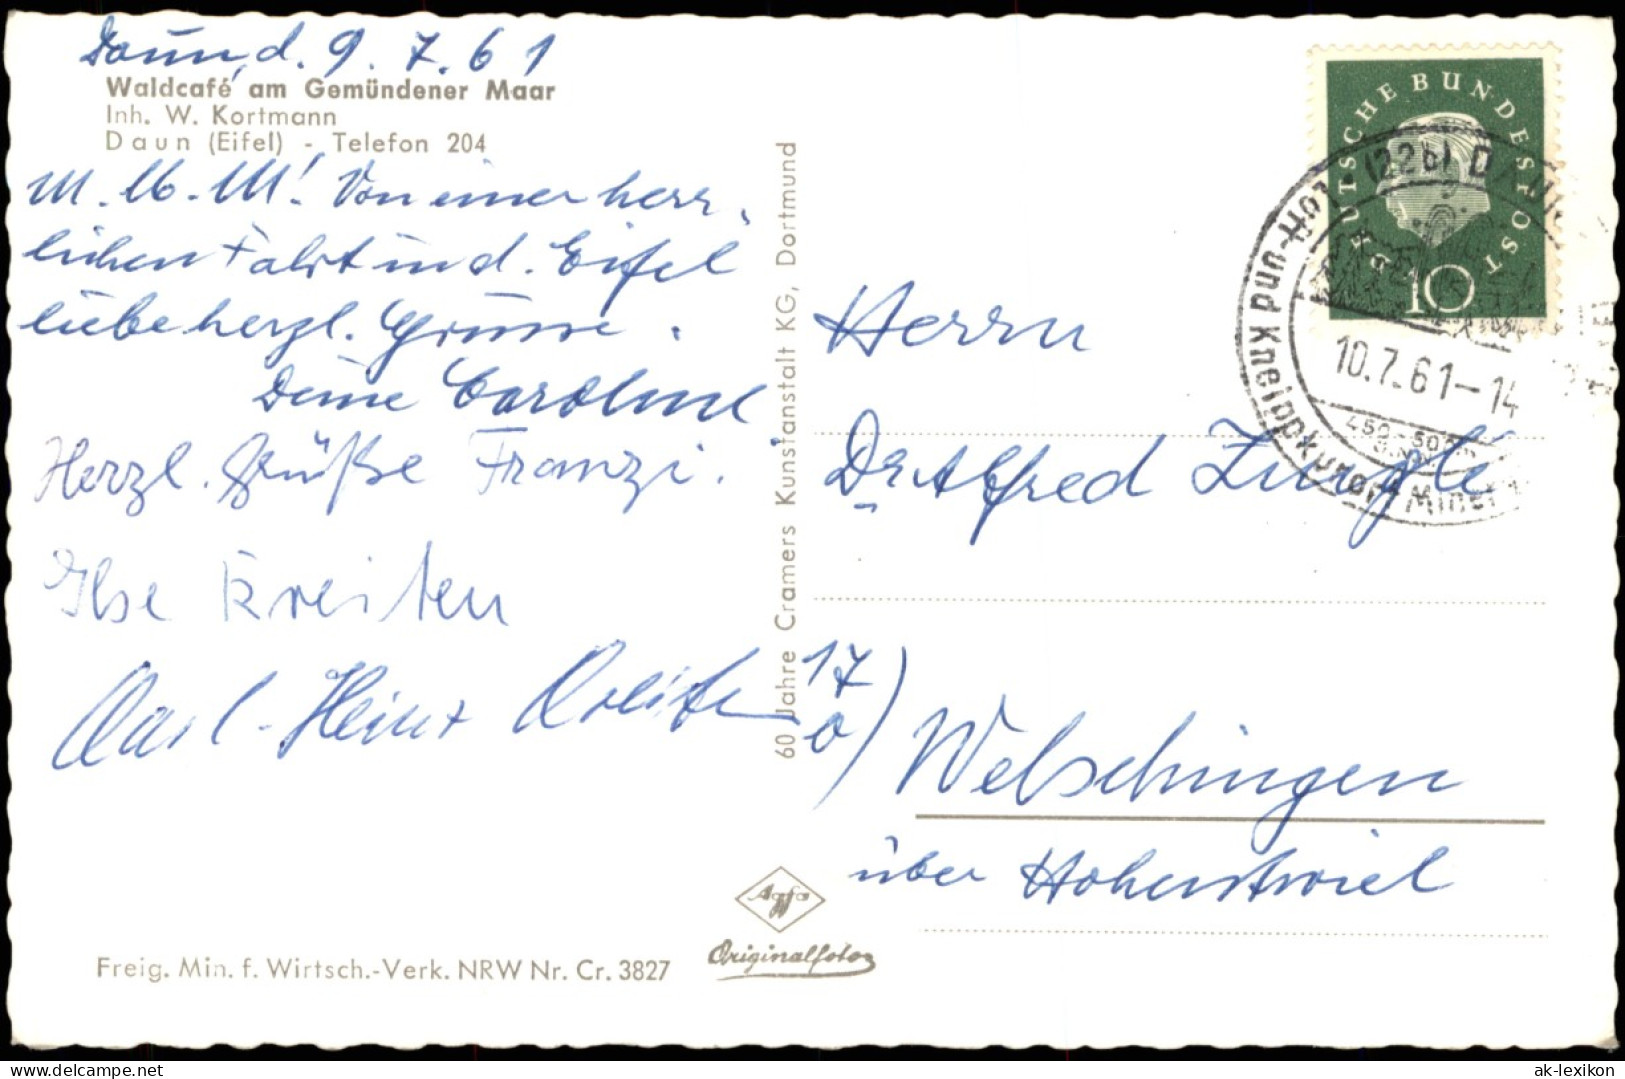 Daun, d. 9. 7. 61
Waldcafé am Gemündener Maar
Inh. W. Kortmann
Daun (Eifel) - Telefon 204
Von einer herr-
lichen Fahrt in d. Eifel
liebe herzl. Grüsse.
Deine Caroline
Herzl. Grüße Franzi.
Ilse Kreiten
Karl-Heinz Kreiten
60 Jahre Cramers Kunstanstalt KG, Dortmund
DEUTSCHE BUNDESPOST
10
(22b) DAUN
Luft- und Kneippkurort Miner
10.7.61-14
450-500
Herrn
Dr. Alfred
17
b)
Welschingen
über Hohentwiel
Agfa
Originalfoto
Freig. Min. f. Wirtsch.-Verk. NRW Nr. Cr. 3827
ak-lexikon.de